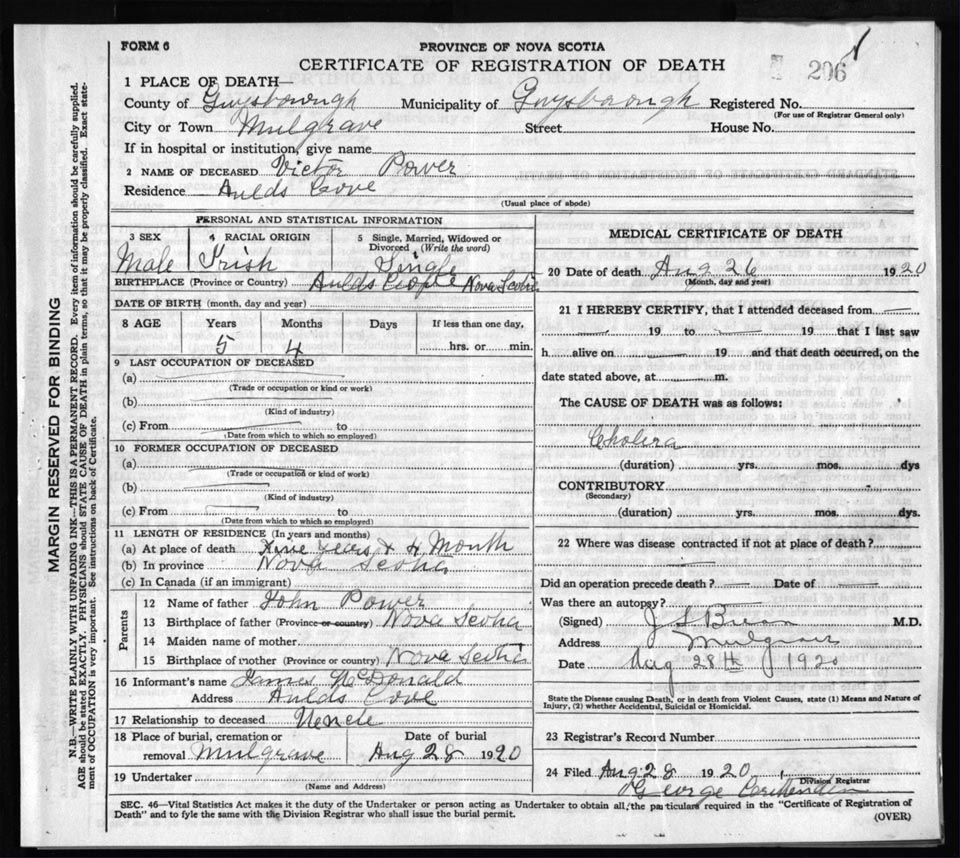 FORM 6
PROVINCE OF NOVA SCOTIA
CERTIFICATE OF REGISTRATION OF DEATH
206
1 PLACE OF DEATH
County of Guysborough Municipality of Guysborough Registered No.
(For use of Registrar General only)
City or Town Mulgrave Street House No.
If in hospital or institution, give name
2 NAME OF DECEASED Victor Power
Residence Aulds Cove
(Usual place of abode)
PERSONAL AND STATISTICAL INFORMATION
3 SEX 4 RACIAL ORIGIN 5 Single, Married, Widowed or Divorced (Write the word)
Male Irish Single
BIRTHPLACE (Province or Country) Aulds Cove Nova Scotia
DATE OF BIRTH (month, day and year)
8 AGE Years Months Days If less than one day,
5 4 hrs. or min.
9 LAST OCCUPATION OF DECEASED
(a)
(Trade or occupation or kind or work)
(b)
(Kind of industry)
(c) From to
(Date from which to which so employed)
10 FORMER OCCUPATION OF DECEASED
(a)
(Trade or occupation or kind of work)
(b)
(Kind of industry)
(c) From to
(Date from which to which so employed)
11 LENGTH OF RESIDENCE (In years and months)
(a) At place of death Five Years & 4 Month
(b) In province Nova Scotia
(c) In Canada (if an immigrant)
Parents
12 Name of father John Power
13 Birthplace of father (Province or country) Nova Scotia
14 Maiden name of mother
15 Birthplace of mother (Province or country) Nova Scotia
16 Informant's name James McDonald
Address Aulds Cove
17 Relationship to deceased Uencle
18 Place of burial, cremation or Date of burial
removal Mulgrave Aug 28 1920
19 Undertaker
(Name and Address)
MEDICAL CERTIFICATE OF DEATH
20 Date of death Aug 26 1920
(Month, day and year)
21 I HEREBY CERTIFY, that I attended deceased from
19 to 19 that I last saw
h alive on 19 and that death occurred, on the
date stated above, at m.
The CAUSE OF DEATH was as follows:
Cholira
(duration) yrs. mos. dys
CONTRIBUTORY
(Secondary)
(duration) yrs. mos. dys.
22 Where was disease contracted if not at place of death?
Did an operation precede death? Date of
Was there an autopsy?
(Signed) J S M.D.
Address Mulgrave
Date Aug 28th 1920
State the Disease causing Death, or in death from Violent Causes, state (1) Means and Nature of
Injury, (2) whether Accidental, Suicidal or Homicidal.
23 Registrar's Record Number
24 Filed Aug 28 1920
Division Registrar
George
SEC. 46—Vital Statistics Act makes it the duty of the Undertaker or person acting as Undertaker to obtain all the particulars required in the "Certificate of Registration of
Death" and to fyle the same with the Division Registrar who shall issue the burial permit.
(OVER)
MARGIN RESERVED FOR BINDING
N.B.—WRITE PLAINLY WITH UNFADING INK—THIS IS A PERMANENT RECORD. Every item of information should be carefully supplied.
AGE should be stated EXACTLY. PHYSICIANS should STATE CAUSE OF DEATH in plain terms, so that it may be properly classified. Exact state-
ment of OCCUPATION is very important. See instructions on back of Certificate.